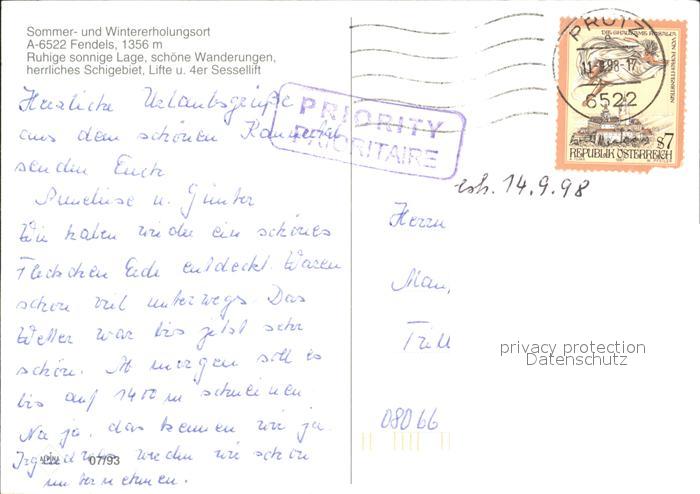 Sommer- und Wintererholungsort
A-6522 Fendels, 1356 m
Ruhige sonnige Lage, schöne Wanderungen,
herrliches Schigebiet, Lifte u. 4er Sessellift
Herzliche Urlaubsgrüße
aus dem schönen Kaunertal
senden Euch
u. Günter
Wir haben wieder ein schönes
Fleckchen Erde entdeckt. Waren
schon viel unterwegs. Das
Wetter war bis jetzt sehr
schön. Ab morgen soll es
bis auf 1400 m schneien.
Na ja, das kennen wir ja.
Irgendwas werden wir schon
unternehmen.
07/93
PRIORITY
PRIORITAIRE
PRUTZ
11-9.98-17
6522
VON FORCHTENSTEIN
s7
REPUBLIK ÖSTERREICH
erh. 14.9.98
Herrn
privacy protection
Datenschutz
08066